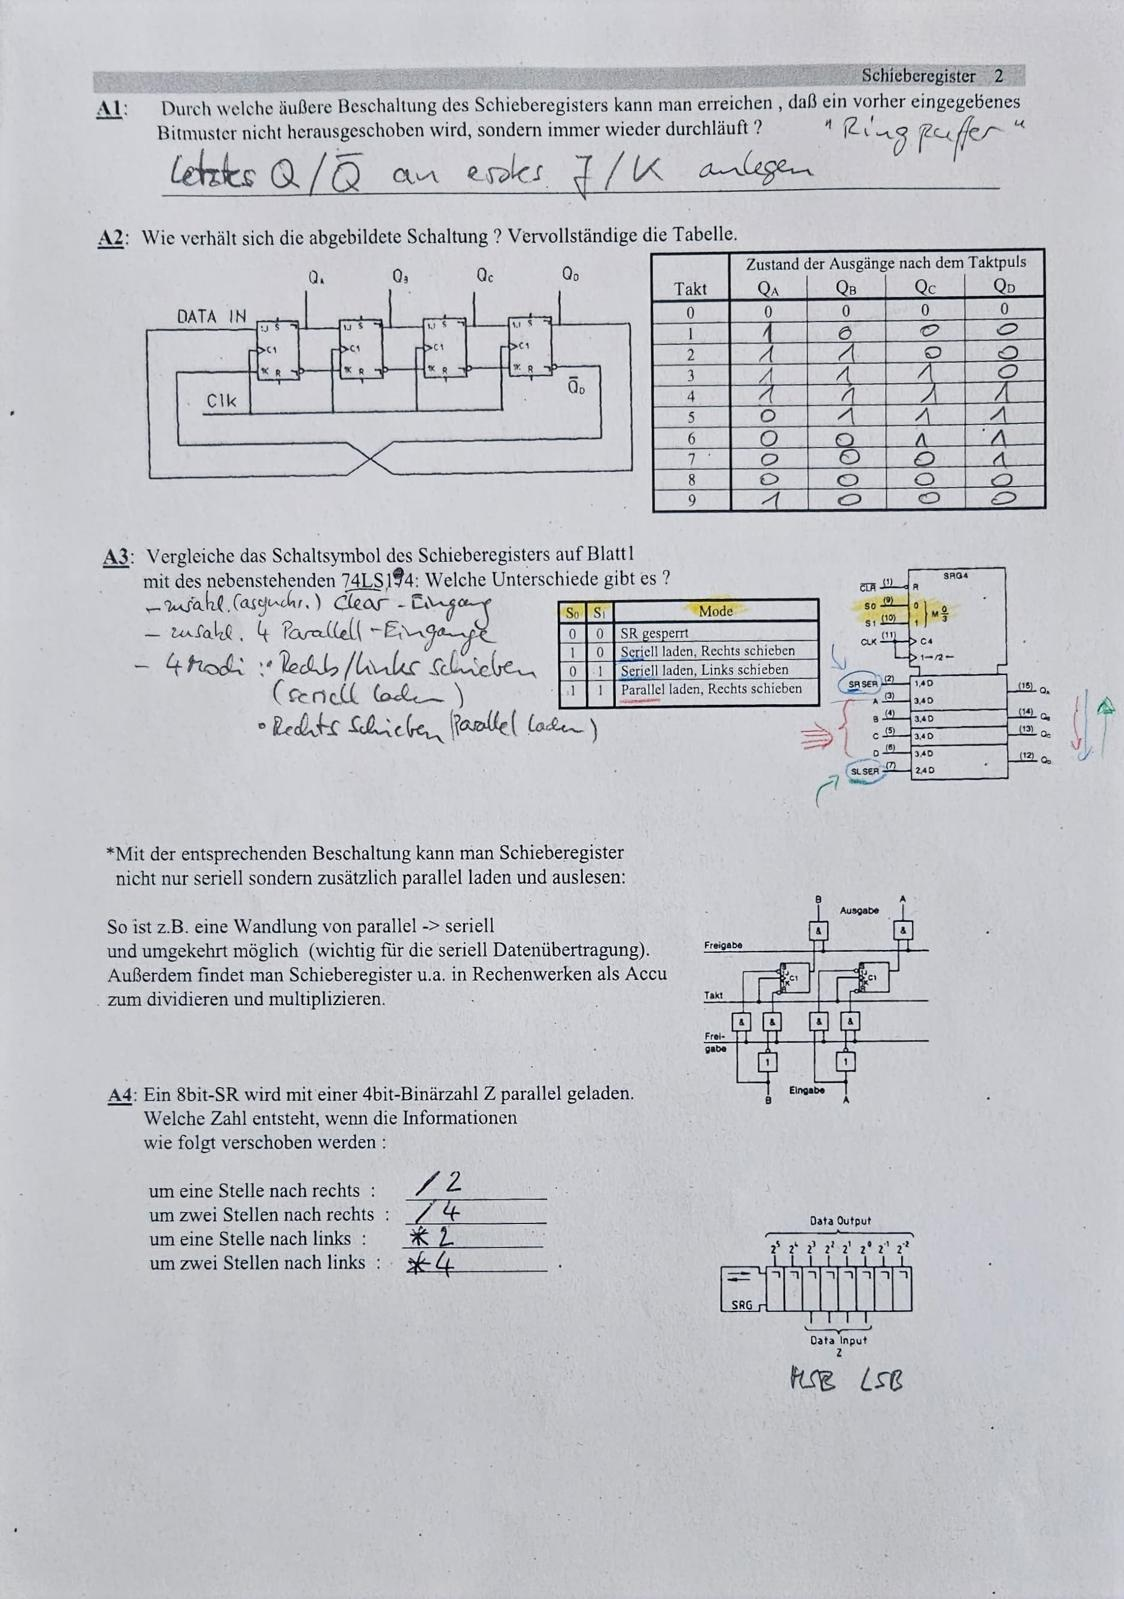 Schieberegister 2
A1: Durch welche äußere Beschaltung des Schieberegisters kann man erreichen , daß ein vorher eingegebenes
Bitmuster nicht herausgeschoben wird, sondern immer wieder durchläuft ?
"Ringpuffer"
letztes Q/Q̅ an erstes J/K anlegen
A2: Wie verhält sich die abgebildete Schaltung ? Vervollständige die Tabelle.
QA QB QC QD
DATA IN
C1 C1 C1 C1
Clk
Q̅D
Zustand der Ausgänge nach dem Taktpuls
Takt QA QB QC QD
0 0 0 0 0
1 1 0 0 0
2 1 1 0 0
3 1 1 1 0
4 1 1 1 1
5 0 1 1 1
6 0 0 1 1
7 0 0 0 1
8 0 0 0 0
9 1 0 0 0
A3: Vergleiche das Schaltsymbol des Schieberegisters auf Blatt1
mit des nebenstehenden 74LS194: Welche Unterschiede gibt es ?
- zusätzl. (asynchr.) Clear-Eingang
- zusätzl. 4 Parallell-Eingänge
- 4 Modi : • Rechts/Links schieben
(seriell laden)
• Rechts schieben (Parallel laden)
S0 S1 Mode
0 0 SR gesperrt
1 0 Seriell laden, Rechts schieben
0 1 Seriell laden, Links schieben
1 1 Parallel laden, Rechts schieben
SRG4
CLR (1) R
S0 (9) 0
S1 (10) 1 M 0/3
CLK (11) C4
1→/2←
SR SER (2) 1,4D
A (3) 3,4D (15) QA
B (4) 3,4D (14) QB
C (5) 3,4D (13) QC
D (6) 3,4D (12) QD
SL SER (7) 2,4D
*Mit der entsprechenden Beschaltung kann man Schieberegister
nicht nur seriell sondern zusätzlich parallel laden und auslesen:
So ist z.B. eine Wandlung von parallel -> seriell
und umgekehrt möglich (wichtig für die seriell Datenübertragung).
Außerdem findet man Schieberegister u.a. in Rechenwerken als Accu
zum dividieren und multiplizieren.
B Ausgabe A
& &
Freigabe
C1 C1
Takt
& & & &
Frei-
gabe
1 1
B Eingabe A
A4: Ein 8bit-SR wird mit einer 4bit-Binärzahl Z parallel geladen.
Welche Zahl entsteht, wenn die Informationen
wie folgt verschoben werden :
um eine Stelle nach rechts : /2
um zwei Stellen nach rechts : /4
um eine Stelle nach links : *2
um zwei Stellen nach links : *4
Data Output
2⁵ 2⁴ 2³ 2² 2¹ 2⁰ 2⁻¹ 2⁻²
SRG
Data Input
Z
MSB LSB